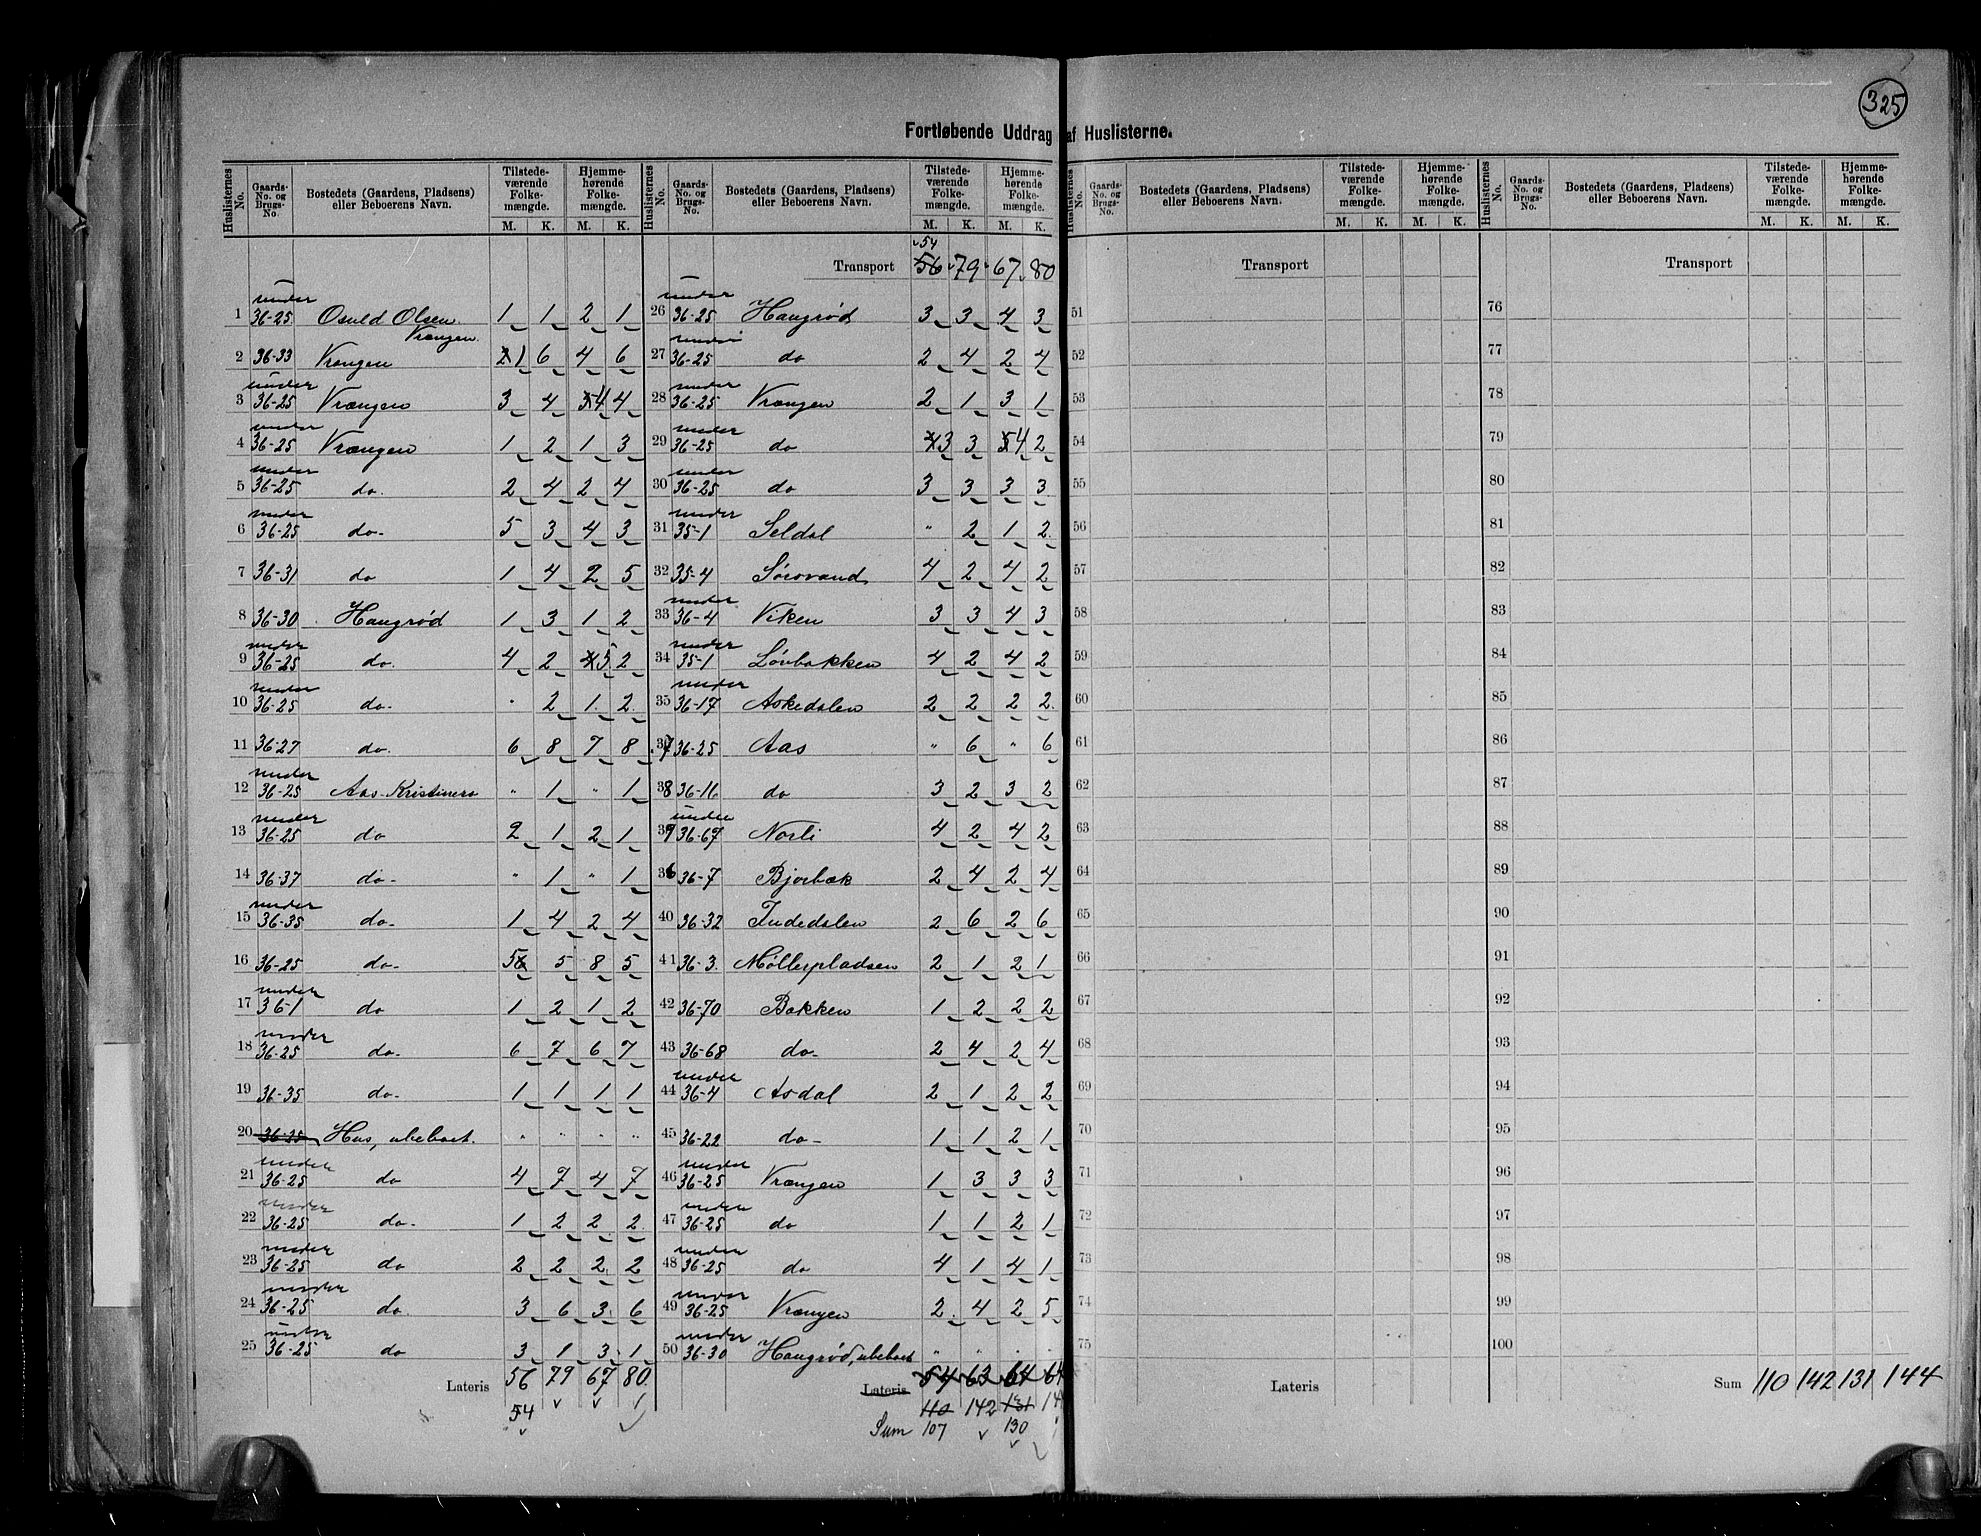 325
Fortløbende Uddrag af Huslisterne.
Huslisternes No. Gaards-No. og Brugs-No. Bostedets (Gaardens, Pladsens) eller Beboerens Navn. Tilstedeværende Folkemængde. M. K. Hjemmehørende Folkemængde. M. K.
1 under 36-25 Osuld Olsen Vrængen 1 1 2 1
2 36-33 Vrængen 1 6 4 6
3 under 36-25 Vrængen 3 4 4 4
4 under 36-25 Vrængen 1 2 1 3
5 under 36-25 do. 2 4 2 4
6 under 36-25 do- 5 3 4 3
7 36-31 do 1 4 2 5
8 36-30 Haugrød 1 3 1 2
9 under 36-25 do. 4 2 5 2
10 under 36-25 do- " 2 1 2
11 36-27 do. 6 8 7 8
12 under 36-25 Aas-Kristinero " 1 " 1
13 under 36-25 do 2 1 2 1
14 36-37 do- " 1 " 1
15 under 36-35 do- 1 4 2 4
16 36-25 do- 5 5 8 5
17 under 36-1 do 1 2 1 2
18 under 36-25 do- 6 7 6 7
19 36-35 do- 1 1 1 1
20 36-25 Hus, ubeboet. " " " "
21 under 36-25 do 4 7 4 7
22 under 36-25 do- 1 2 2 2
23 under 36-25 do 2 2 2 2
24 under 36-25 do. 3 6 3 6
25 under 36-25 do 3 1 3 1
Lateris 56 79 67 80
54
Huslisternes No. Gaards-No. og Brugs-No. Bostedets (Gaardens, Pladsens) eller Beboerens Navn. Tilstedeværende Folkemængde. M. K. Hjemmehørende Folkemængde. M. K.
54
Transport 56 79 67 80
26 under 36-25 Haugrød 3 3 4 3
27 under 36-25 do 2 4 2 4
28 under 36-25 Vrængen 2 1 3 1
29 under 36-25 do 3 3 4 2
30 under 36-25 do 3 3 3 3
31 under 35-1 Seldal " 2 1 2
32 35-4 Sørovand 4 2 4 2
33 under 36-4 Viken 3 3 4 3
34 under 35-1 Løvbakken 4 2 4 2
35 under 36-17 Askedalen 2 2 2 2
37 36-25 Aas " 6 " 6
38 36-16 do 3 2 3 2
39 under 36-67 Norli 4 2 4 2
36 36-7 Bjorbæk 2 4 2 4
40 36-32 Indedalen 2 6 2 6
41 36-3 Møllerpladsen 2 1 2 1
42 36-70 Bakken 1 2 2 2
43 36-68 do- 2 4 2 4
44 under 36-4 Asdal 2 1 2 2
45 36-22 do- 1 1 2 1
46 under 36-25 Vrængen 1 3 3 3
47 under 36-25 do 1 1 2 1
48 under 36-25 do 4 1 4 1
49 under 36-25 Vrængen 2 4 2 5
50 under 36-30 Haugrød, ubeboet " " " "
Lateris 54 63 64 64
110 142 131
Sum 107 130
Huslisternes No. Gaards-No. og Brugs-No. Bostedets (Gaardens, Pladsens) eller Beboerens Navn. Tilstedeværende Folkemængde. M. K. Hjemmehørende Folkemængde. M. K.
Transport
51
52
53
54
55
56
57
58
59
60
61
62
63
64
65
66
67
68
69
70
71
72
73
74
75
Lateris
Huslisternes No. Gaards-No. og Brugs-No. Bostedets (Gaardens, Pladsens) eller Beboerens Navn. Tilstedeværende Folkemængde. M. K. Hjemmehørende Folkemængde. M. K.
Transport
76
77
78
79
80
81
82
83
84
85
86
87
88
89
90
91
92
93
94
95
96
97
98
99
100
Sum 110 142 131 144